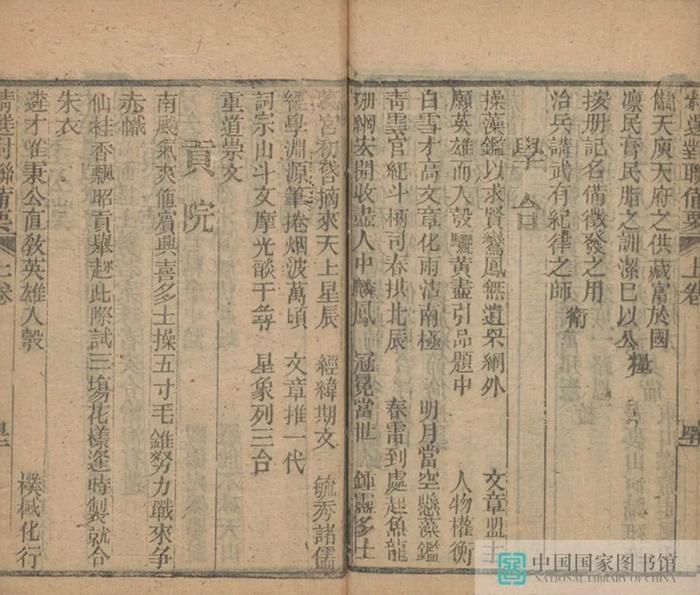 對聯備要 上卷
天庾天府之供藏富於國
凜民膏民脂之訓潔已以公
糧
按册記名備徵發之用
治兵講武有紀律之師
衙
學台
操藻鑑以求賢鸞鳳無遺采網外 文章盟主
願英雄而入彀驪黃盡引品題中 人物權衡
白雪才高文章化雨沾南極 明月當空懸藻鑑
青雲官紅斗柄司春拱北辰 春雷到處起魚龍
珊網宏開收盡人中麟鳳 冠冕當世 多士
宮初啓摘來天上星辰 經緯期文 毓秀諸儒
經學淵源筆捲烟波萬頃 文章推一代
詞宗山斗文摩光燄千尋 星象列三台
重道崇文
貢院
南颷氣爽值賓興喜多士操五寸毛錐努力戰來爭
赤幟
仙桂香飄昭貢舉趂此際試三塲花樣逢時製就合
朱衣
遴才唯秉公直敎英雄入彀 樸棫化行
精選對聯備要 上卷
中国国家图书馆
NATIONAL LIBRARY OF CHINA